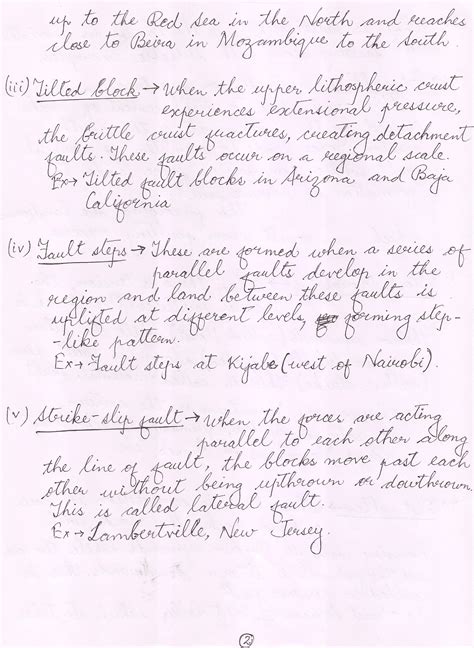 up to the Red Sea in the North and reaches
close to Beira in Mozambique to the South.
(iii) Tilted block → When the upper lithospheric crust
experiences extensional pressure,
the brittle crust fractures, creating detachment
faults. These faults occur on a regional scale.
Ex → Tilted fault blocks in Arizona and Baja
California
(iv) Fault steps → These are formed when a series of
parallel faults develop in the
region and land between these faults is
uplifted at different levels, forming step-
-like pattern.
Ex → Fault steps at Kijabe (west of Nairobi).
(v) Strike-slip fault → When the forces are acting
parallel to each other along
the line of fault, the blocks move past each
other without being upthrown or dowthrown.
This is called lateral fault.
Ex → Lambertville, New Jersey.
2